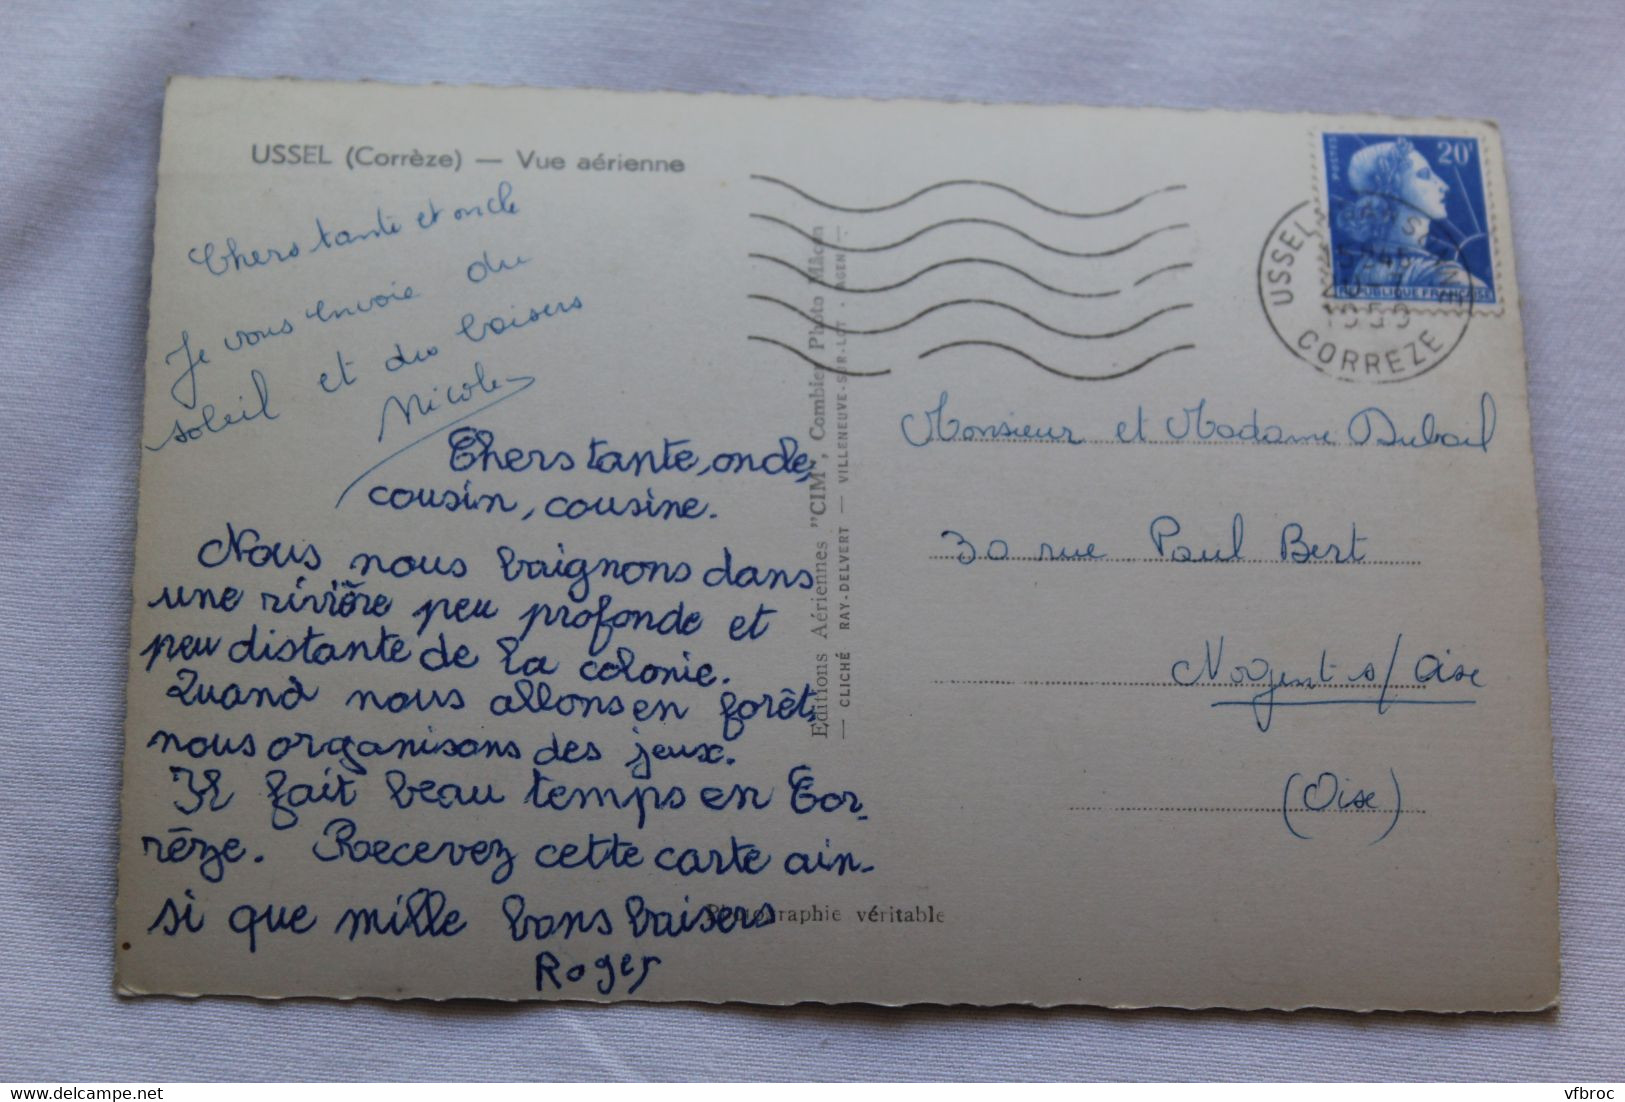 USSEL (Corrèze) — Vue aérienne
Chers tante et oncle
Je vous envoie du
soleil et des baisers
Nicole
Chers tante, oncle,
cousin, cousine.
Nous nous baignons dans
une rivière peu profonde et
peu distante de la colonie.
Quand nous allons en forêt,
nous organisons des jeux.
Il fait beau temps en Cor-
rèze. Recevez cette carte ain-
si que mille bons baisers
Roger
Editions Aériennes "CIM", Combier Photo Mâcon
— CLICHÉ RAY-DELVERT — VILLENEUVE-SUR-LOT - AGEN —
Photographie véritable
POSTES
20F
REPUBLIQUE FRANÇAISE
USSEL
CORREZE
Monsieur et Madame Dubail
30 rue Paul Bert
Nogent s/ Oise
(Oise)
vfbroc